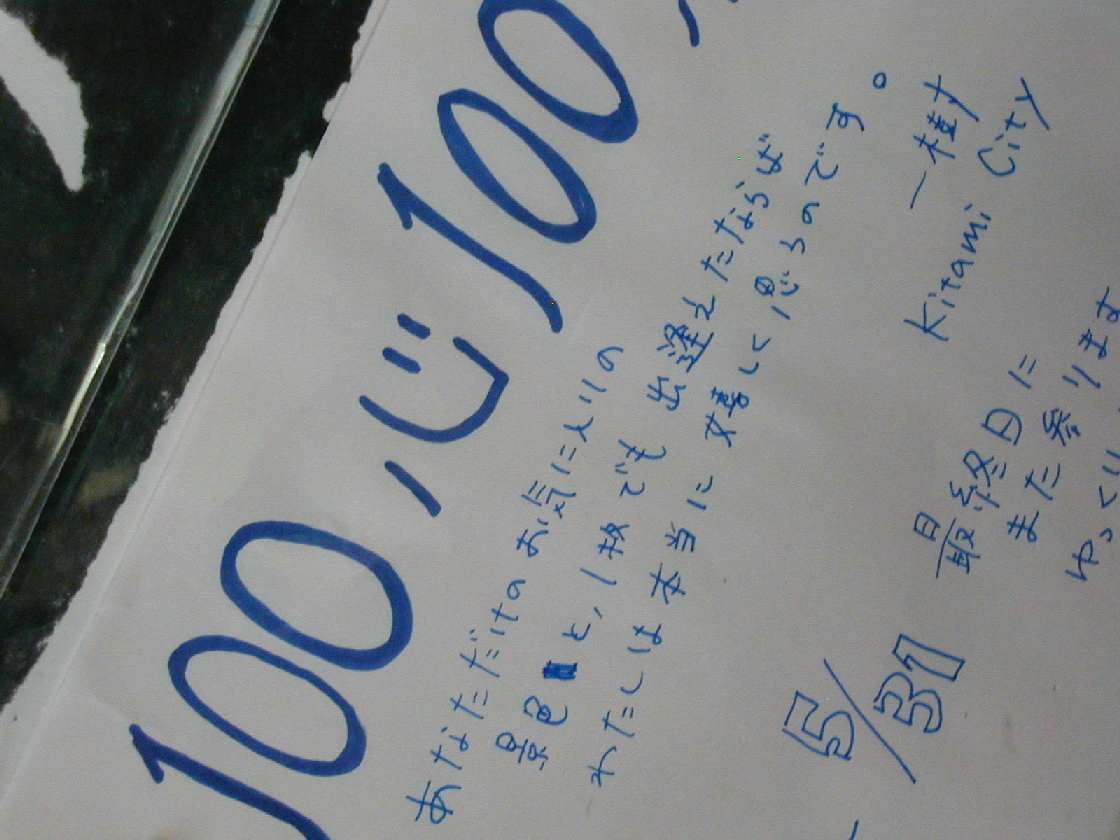 100, 100,
あなただけのお気に入りの
景色と、1枚でも出逢えたならば
わたしは本当に嬉しく思うのです。
一樹
Kitami City
5/31
最終日に
また参ります
ゆっくり